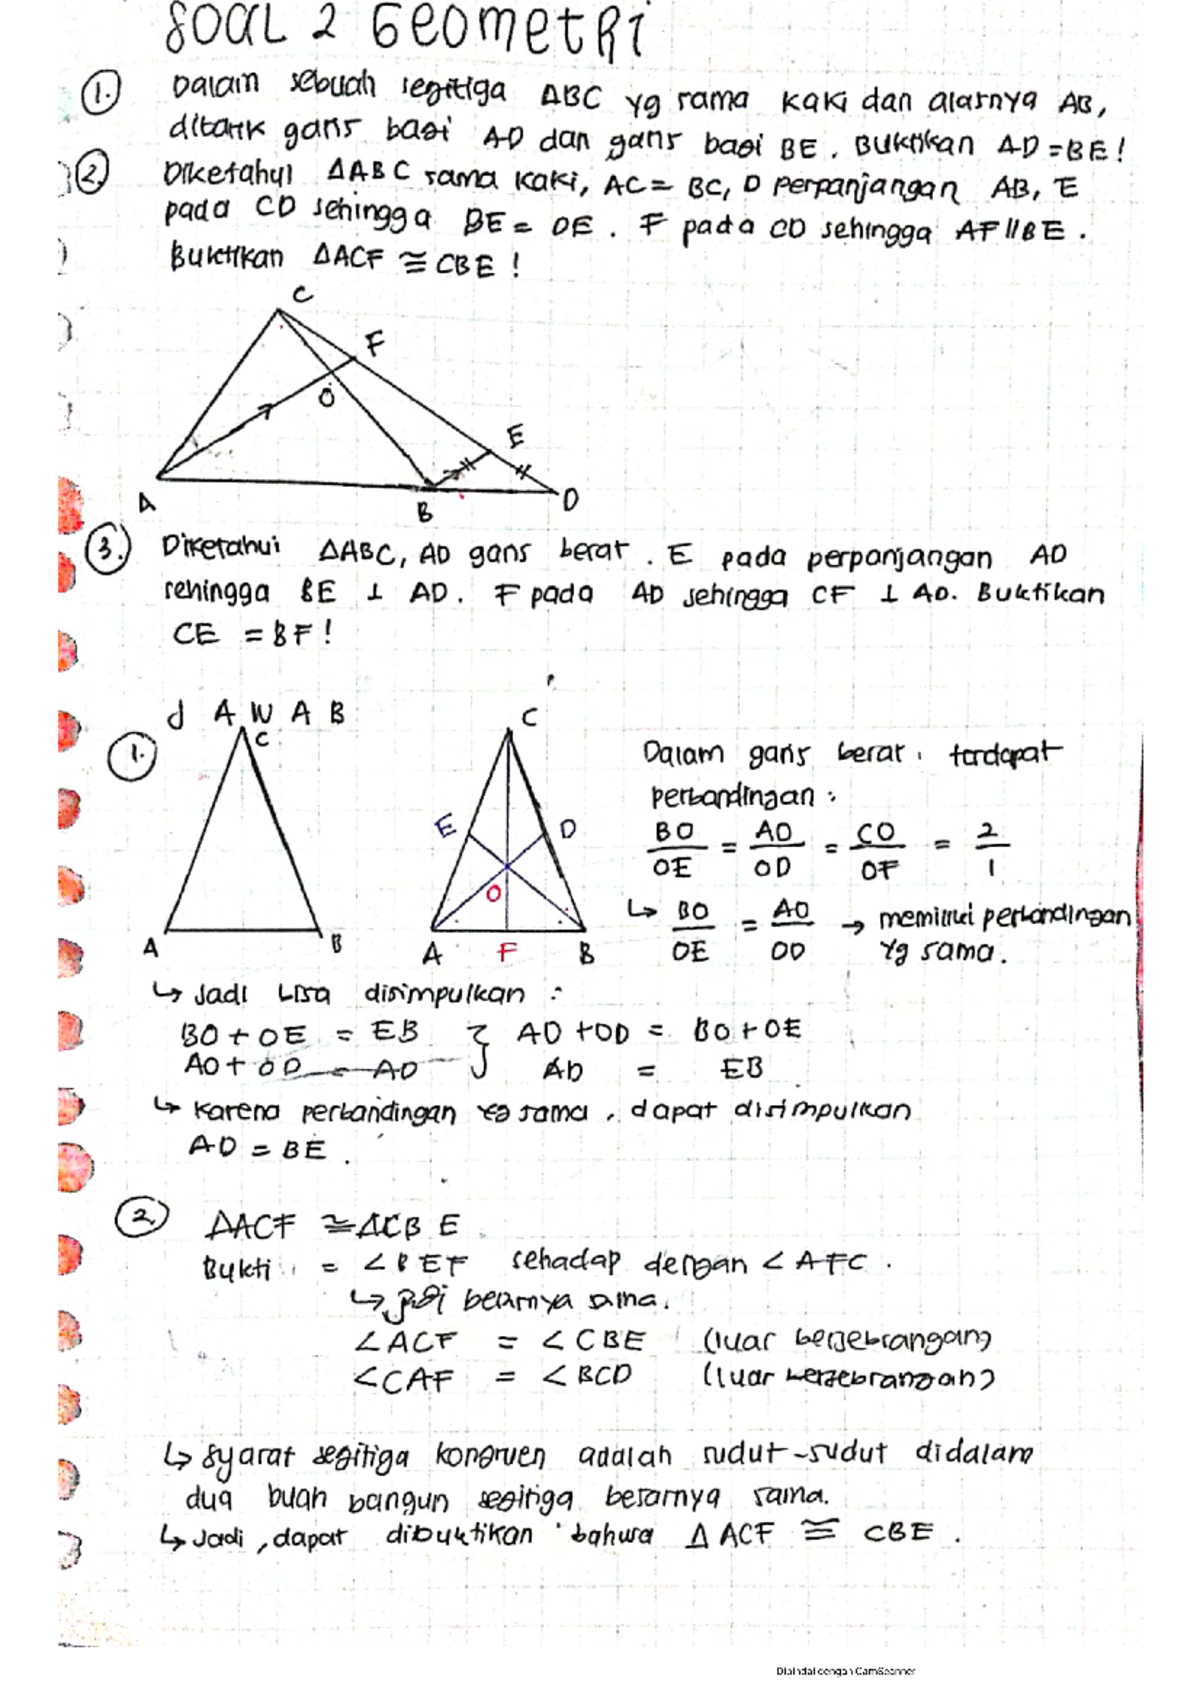 SOAL 2 GEOMETRI
1. Dalam sebuah segitiga ABC yg sama kaki dan alasnya AB,
ditarik garis bagi AD dan garis bagi BE. Buktikan AD = BE!
2. Diketahui ΔABC sama kaki, AC = BC, D perpanjangan AB, E
pada CD sehingga BE = DE. F pada CD sehingga AF // BE.
Buktikan ΔACF ≅ CBE!
C
F
O
E
A
B
D
3. Diketahui ΔABC, AD garis berat. E pada perpanjangan AD
sehingga BE ⊥ AD. F pada AD sehingga CF ⊥ AD. Buktikan
CE = BF!
JAWAB
1.
C
A B
C
E D
O
A F B
Dalam garis berat, terdapat
perbandingan:
BO/OE = AO/OD = CO/OF = 2/1
↳ BO/OE = AO/OD → memiliki perbandingan
yg sama.
↳ Jadi bisa disimpulkan :
BO + OE = EB } AO + OD = BO + OE
AO + OD = AD AD = EB
↳ Karena perbandingan yg sama, dapat disimpulkan
AD = BE.
2. ΔACF ≅ ΔCBE
Bukti = ∠BEF sehadap dengan ∠AFC.
↳ Jadi besarnya sama.
∠ACF = ∠CBE (luar bersebrangan)
∠CAF = ∠BCD (luar bersebrangan)
↳ Syarat segitiga kongruen adalah sudut-sudut didalam
dua buah bangun segitiga besarnya sama.
↳ Jadi, dapat dibuktikan bahwa ΔACF ≅ CBE.
Dipindai dengan CamScanner